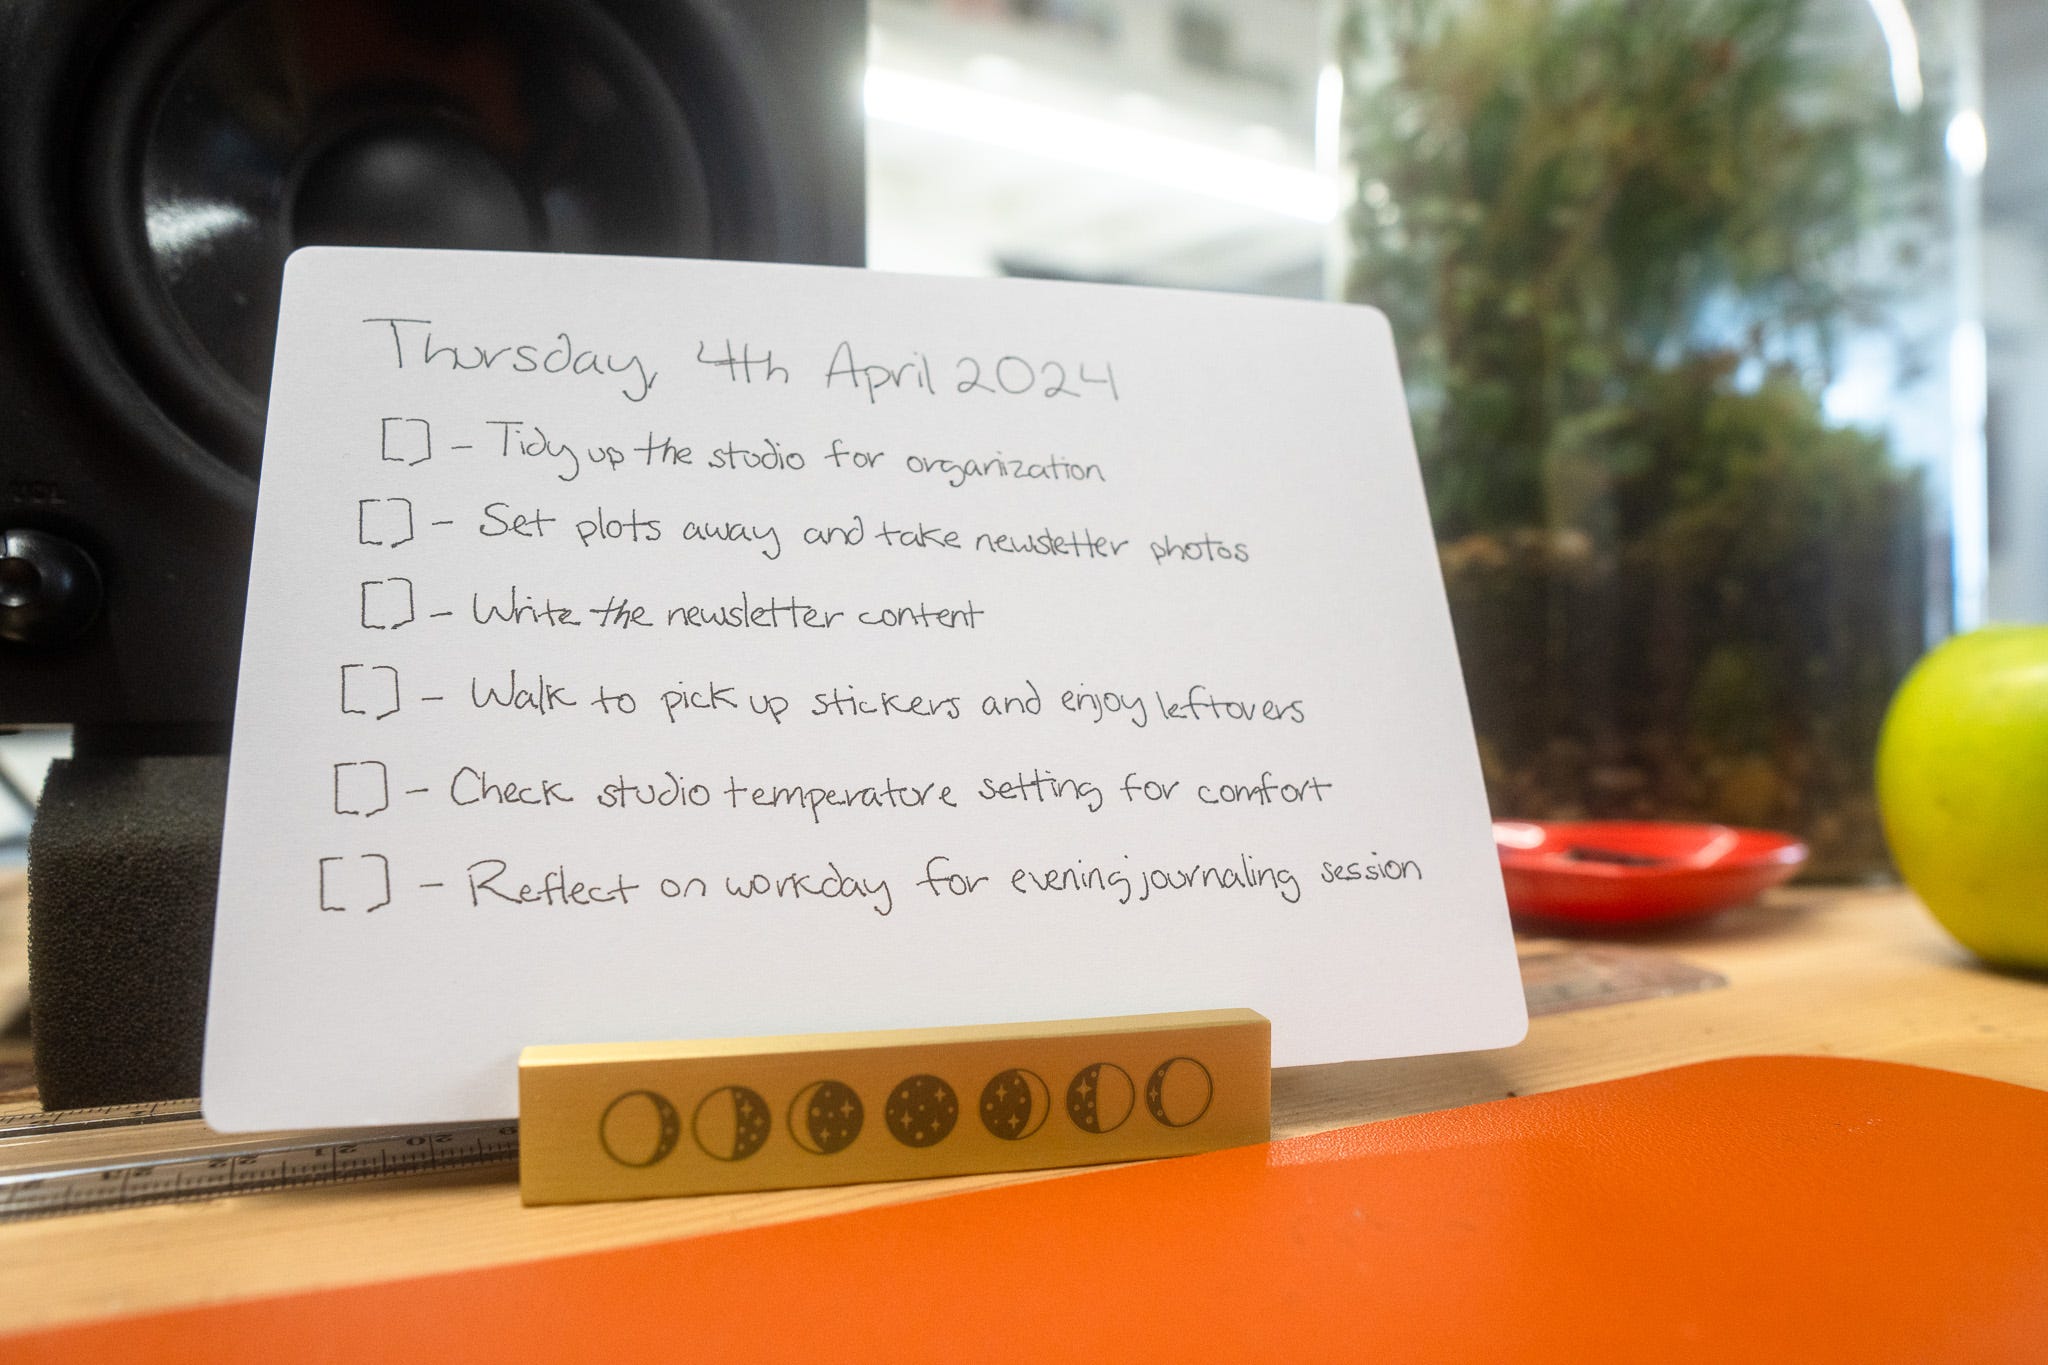 Thursday, 4th April 2024
[ ] - Tidy up the studio for organization
[ ] - Set plots away and take newsletter photos
[ ] - Write the newsletter content
[ ] - Walk to pick up stickers and enjoy leftovers
[ ] - Check studio temperature setting for comfort
[ ] - Reflect on workday for evening journaling session